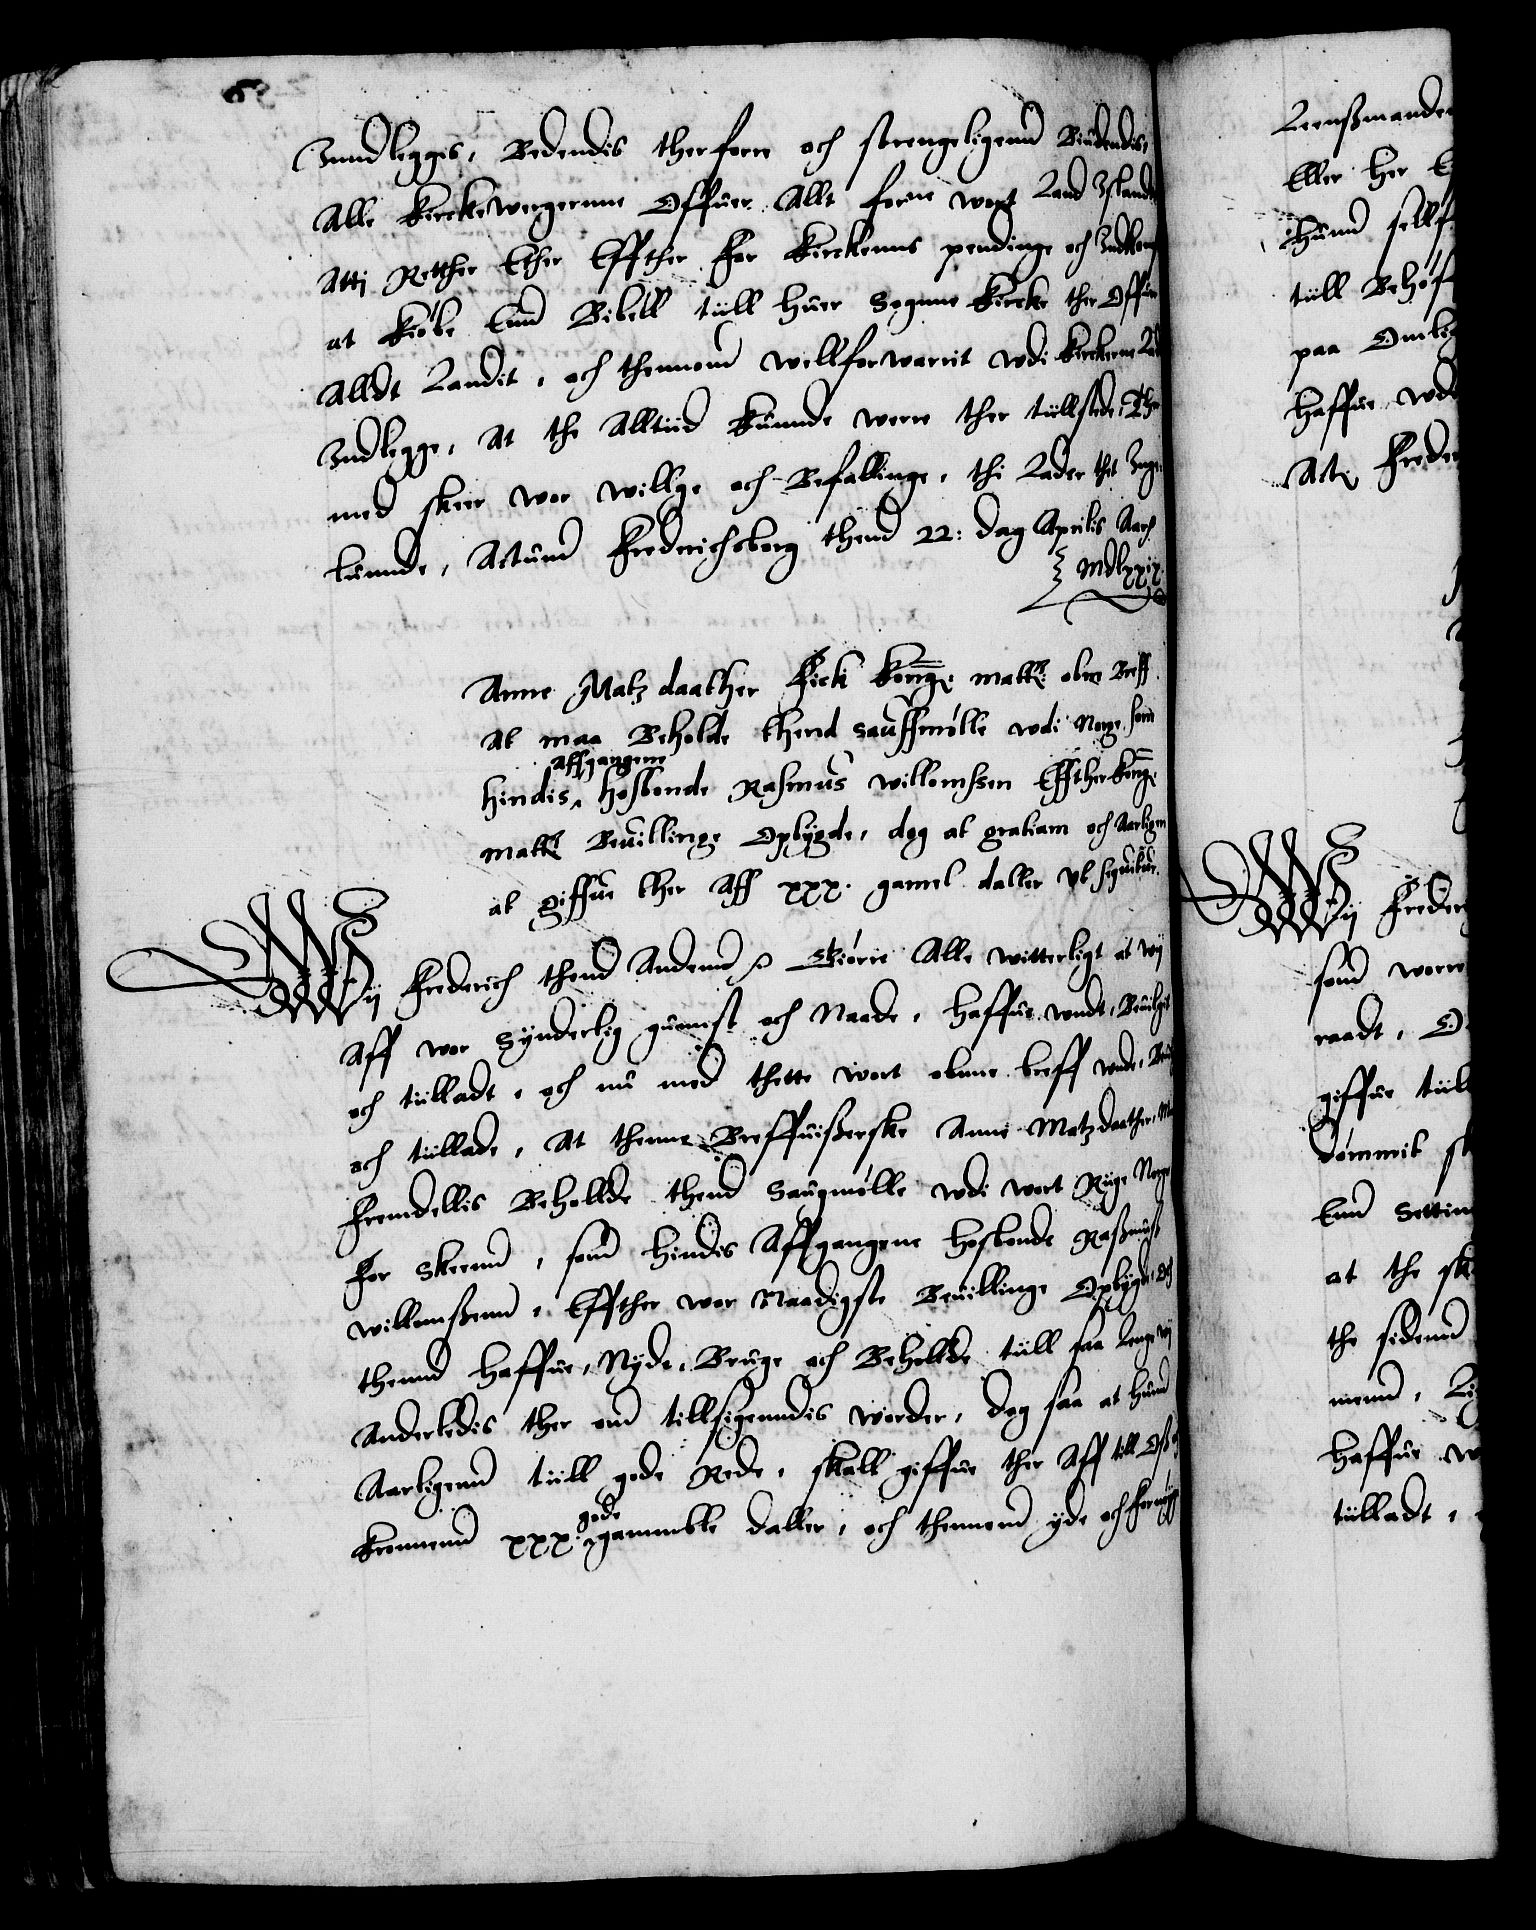 Inndleggis, Bedendis therforre och strengeligenn Biudendis,
Alle Kirckewergernne Offuer Allt forne wort Land Island
Atti Retther Ether Effther for Kirckenns pendinge och Indkomst
at Kiøbe Enn Bibell tiill huer Sognne Kircke ther Offuer
Alldt Landit, och thennom wellforwarrit wdi Kirckerne Lade
Indlegge, At the Alltiid kunnde werre ther tiillstede, Ther
med skeer wor willge och Befallinge, thi Lader thet Inge
lunnde, Actum Frederichsborg thend 22: dag Aprilis Aar
Mdlxxix.
Anne Matz daather Fick Kong: Matt: obne Breff
At maa Beholde thend Sauffmølle wdi Norge som
hindis affgangene hosbonde Rasmus willomssen Effther Kong:
Matt: Beuillinge Opbygde, dog at gratiam och Aarligen
at giffue ther Aff xxx. gamel daller vt sequitur.
Wij Frederich thend Andenn Giørre Alle witterligt at wij
Aff wor Synderlig gunnst och Naade, haffue wndt, Beuilgit
och tiilladt, och nu med thette wort obnne breff wnde,
och tiillade, At thenne Breffuiserske Anne Matzdaather, Maa
Fremdellis Behollde thend Saugmølle wdi wort Riige Norge
for Skeenn, som hindis Affgangene hosbonde Rasmus
willomssenn, Effther wor Naadigste Beuillinge Opbygde, och
thennd haffue, Nyde, Bruge och Behollde tiill saa Lenge wij
Anderledis ther om tillsigenndis worder, dog saa at hun
Aarligenn tiill gode Rede, skall giffue ther Aff till Oss och
Kronnenn xxx: gode gammble daller, och thennom yde och fornøge
Leensmanden
Eller her
hunn sellff
tiill Behoff
paa
haffue wdi
Frede
Wij Freder
som worre
raadt,
giffue tiil
dømmit
Enn Settin
at the sk
the sidenn
menn,
haffue
tiilladt,